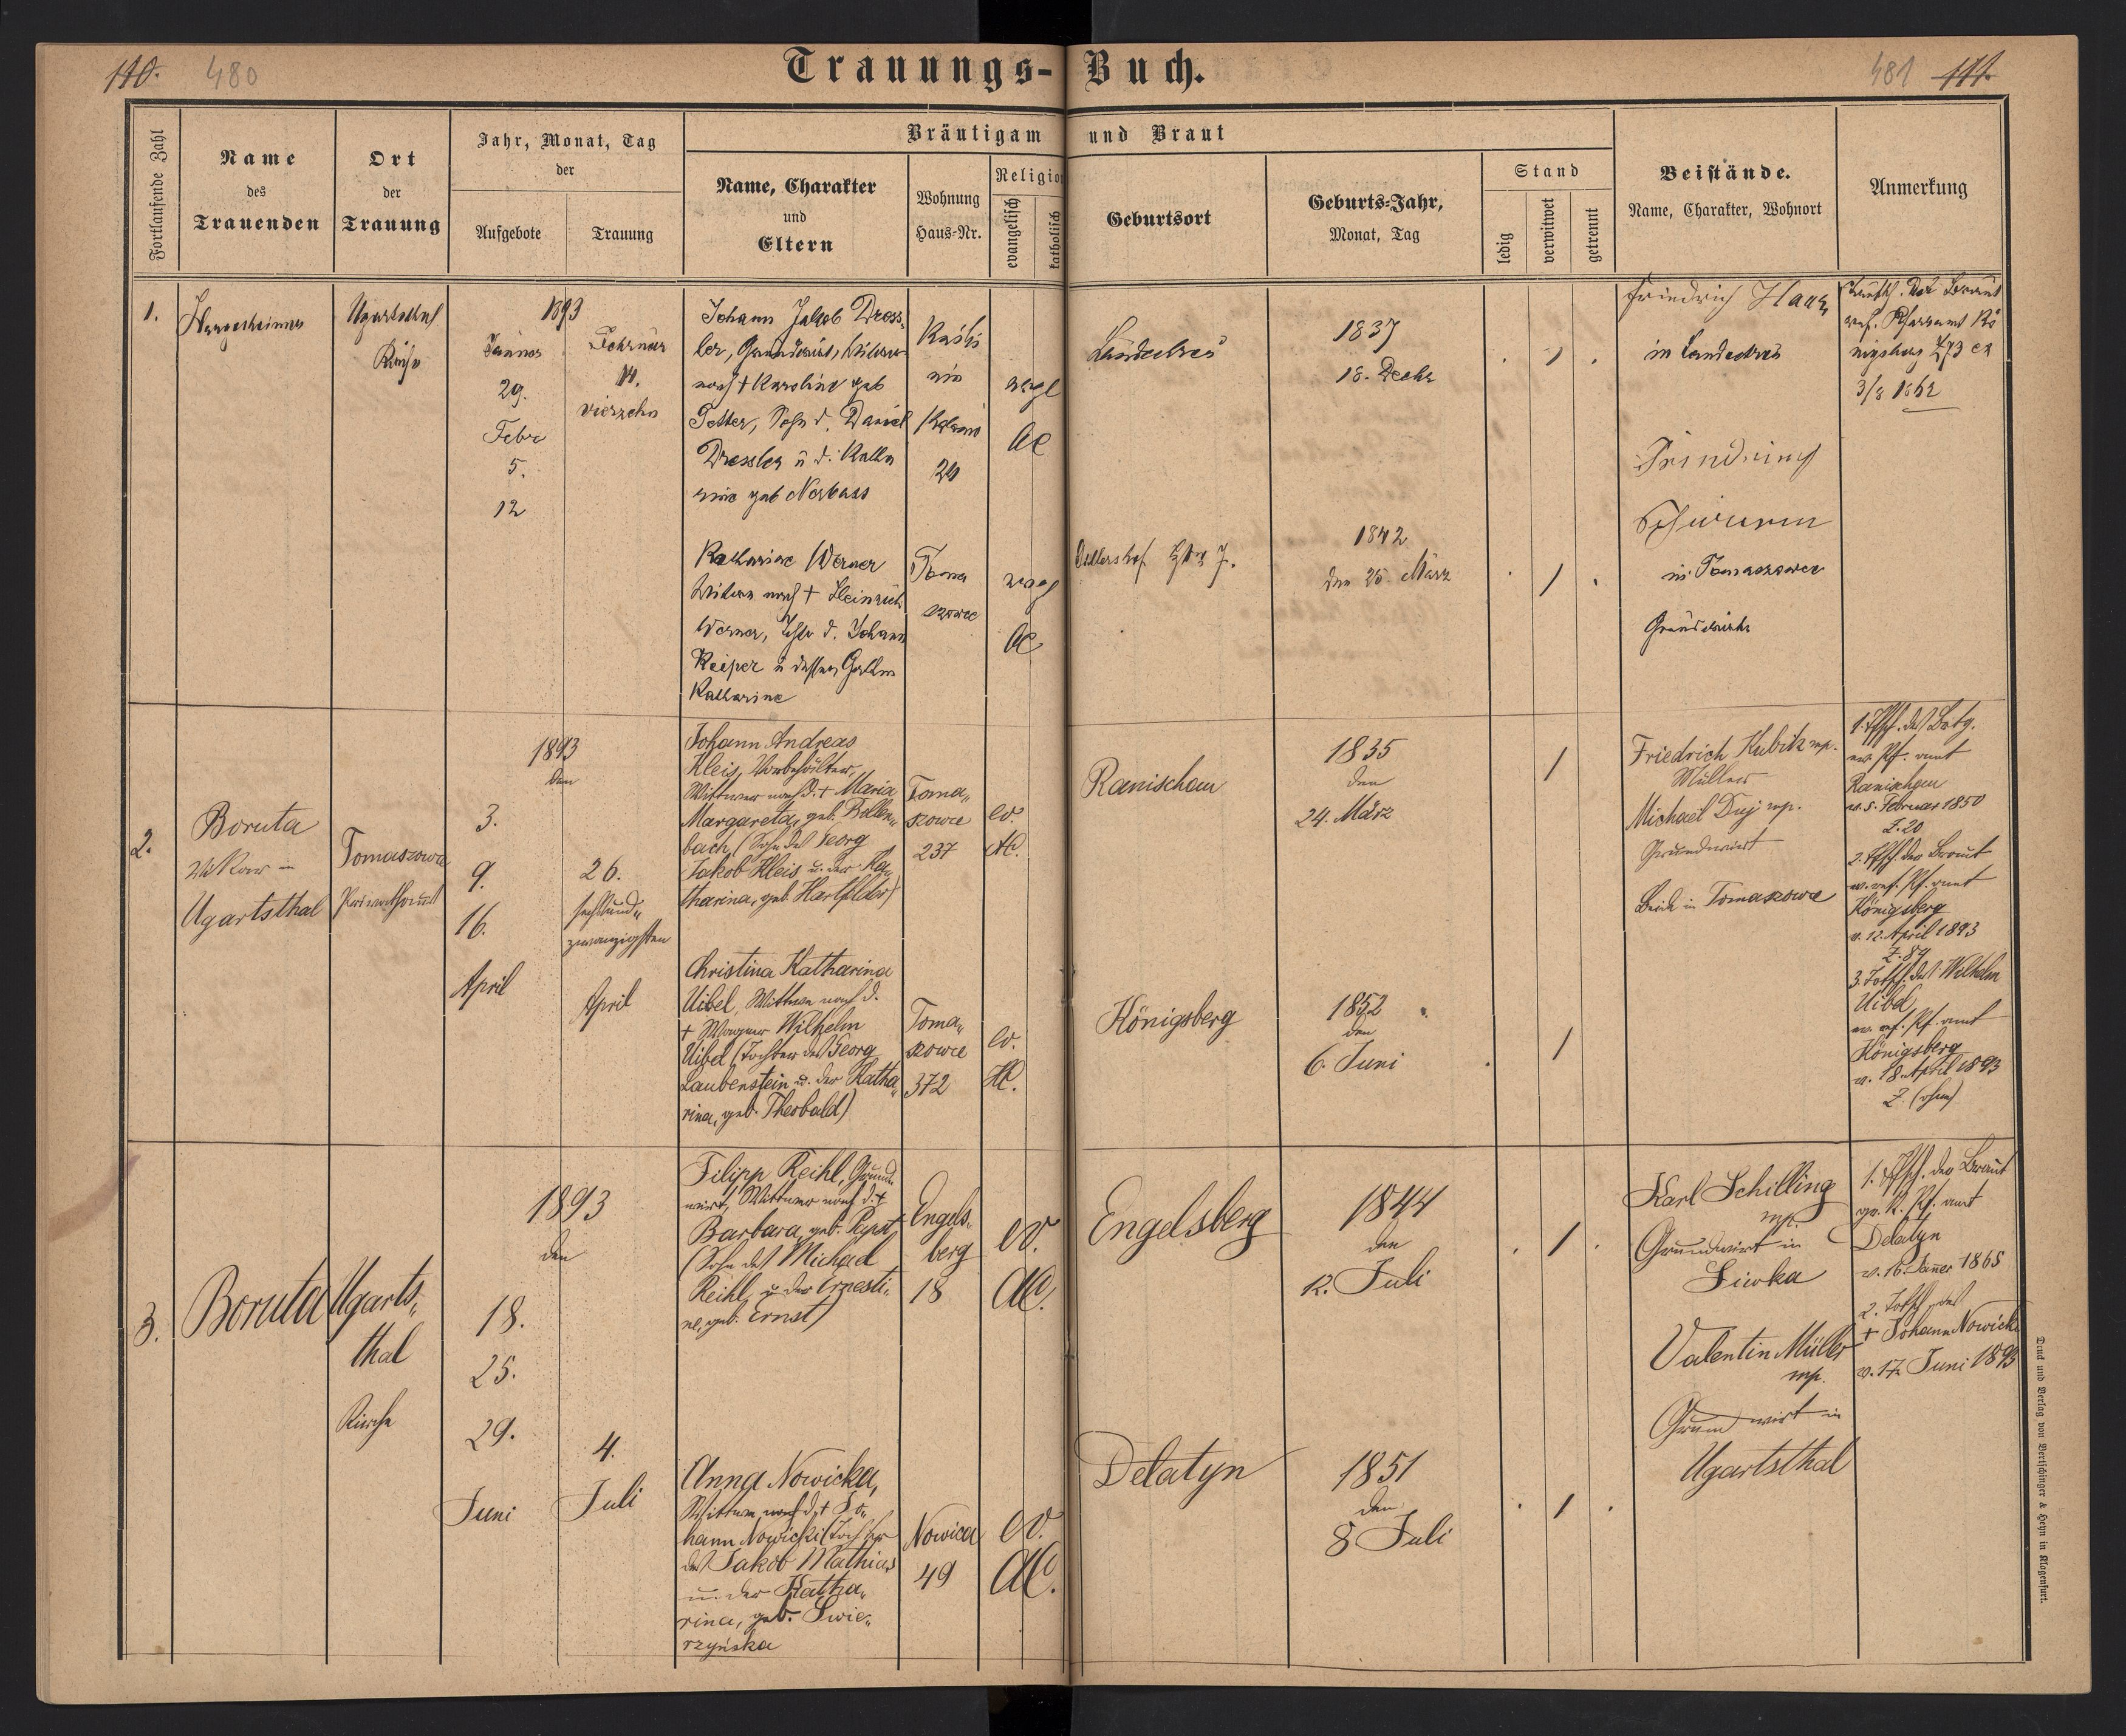 110. 480
Trauungs-Buch.
481 111.
Fortlaufende Zahl
Name
des
Trauenden
Ort
der
Trauung
Jahr, Monat, Tag
der
Aufgebote
Trauung
Bräutigam und Braut
Name, Charakter
und
Eltern
Wohnung
Haus-Nr.
Religion
evangelisch
katholisch
Geburtsort
Geburts-Jahr,
Monat, Tag
Stand
ledig
verwitwet
getrennt
Beistände.
Name, Charakter, Wohnort
Anmerkung
1.
Ugartsthal
Kirche
1893
Jänner
29.
Febr
5.
12
Februar
14.
vierzehn
Johann Jakob Dress-
ler, Grundwirt, Witwer
nach + Karoline geb
Better, Sohn d. Daniel
Dressler u d. Katha
rine geb Nerbass
24
evgl
AC
Landestreu
1837
18. Decbr
Friedrich Haas
in Landestreu
3/8 1862
Schwarm
in Tomaszowce
Grundwirte
Katharine Werner
Witwe nach + Heinrich
Werner, Tochter d. Johann
Keiper u dessen Gattin
Katharine
Toma
szowce
evgl
AC
1842
den 25. März
2.
Boruta
Vikar in
Ugartsthal
Tomaszowce
1893
den
3.
9.
16.
April
26.
sechsund„
zwanzigsten
April
Johann Andreas
Kleis, Vorbehälter,
Wittwer nach d. + Maria
Margareta, geb. Bellen„
bach, (Sohn des Georg
Jakob Kleis u. der Ka„
tharina, geb. Hartfelder)
Toma„
szowce
237
ev.
AC.
Ranischau
1835
den
24. März
Friedrich Kubik mp.
Müller
Michael Duy mp.
Grundwirt
Beide in Tomaszowce
1. Tfsch. des Brtg.
ev. Pf. amt
Ranischau
v. 5. Februar 1850
Z. 20
2. Tfsch der Braut
v. ref. Pf. amt
Königsberg
v. 12. April 1893
Z. 84
3. Totsch. des Wilhelm
Uibel
ev. ref. Pf. amt
Königsberg
v. 18. April 1893
Z. (ohne)
Christina Katharina
Uibel, Wittwe nach d.
+ Wagner Wilhelm
Uibel (Tochter des Georg
Laubenstein u. der Katha„
rina, geb. Theobald)
Toma„
szowce
372
ev.
HC.
Königsberg
1852
den
6. Juni
3.
Boruta
Ugarts„
thal
Kirche
1893
den
18.
25.
29.
Juni
4.
Juli
Filipp Reihl, Grund
wirt, Wittwer nach d. +
Barbara, geb. Papst
(Sohn des Michael
Reihl u der Ernesti„
ne, geb. Ernst)
Engels„
berg
18
ev.
AC.
Engelsberg
1844
den
12. Juli
Karl Schilling
mp.
Grundwirt in
Siwka
Valentin Müller
mp.
Grundwirt in
Ugartsthal
1. Tfsch. der Braut
gr. k. Pf. amt
Delatyn
v. 16. Jänner 1865
2. Totsch des
+ Johann Nowicki
v. 17. Juni 1893
Anna Nowicka,
Wittwe nach d. + Jo„
hann Nowicki (Tochter
des Jakob Mathias
u. der Katha„
rina, geb. Swie„
rzyńska
Nowica
49
ev.
AC.
Delatyn
1851
den
8 Juli
Druck und Verlag von Bertschinger & Heyn in Klagenfurt.